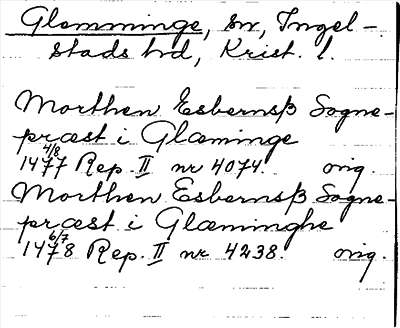 Glemminge, sn, Ingel-
stads hd, Krist. l.
Morthen Esbernsß Sogne-
præst i Glæminge
4/8
1477 Rep. II nr 4074. orig.
Morthen Esbernsß Sogne-
præst i Glæminghe
6/7
1478 Rep. II nr 4238. orig.